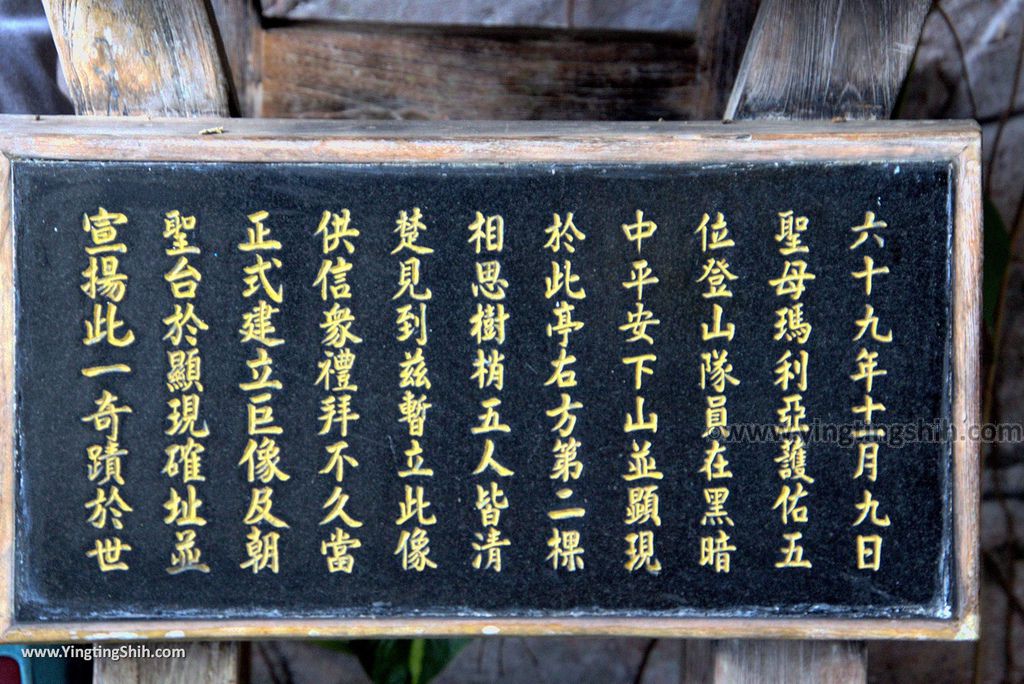 六十九年十一月九日
聖母瑪利亞護佑五
位登山隊員在黑暗
中平安下山並顯現
於此亭右方第二棵
相思樹梢五人皆清
楚見到茲暫立此像
供信眾禮拜不久當
正式建立巨像及朝
聖台於顯現確址並
宣揚此一奇蹟於世
www.yingtingshih.com
www.YingtingShih.com